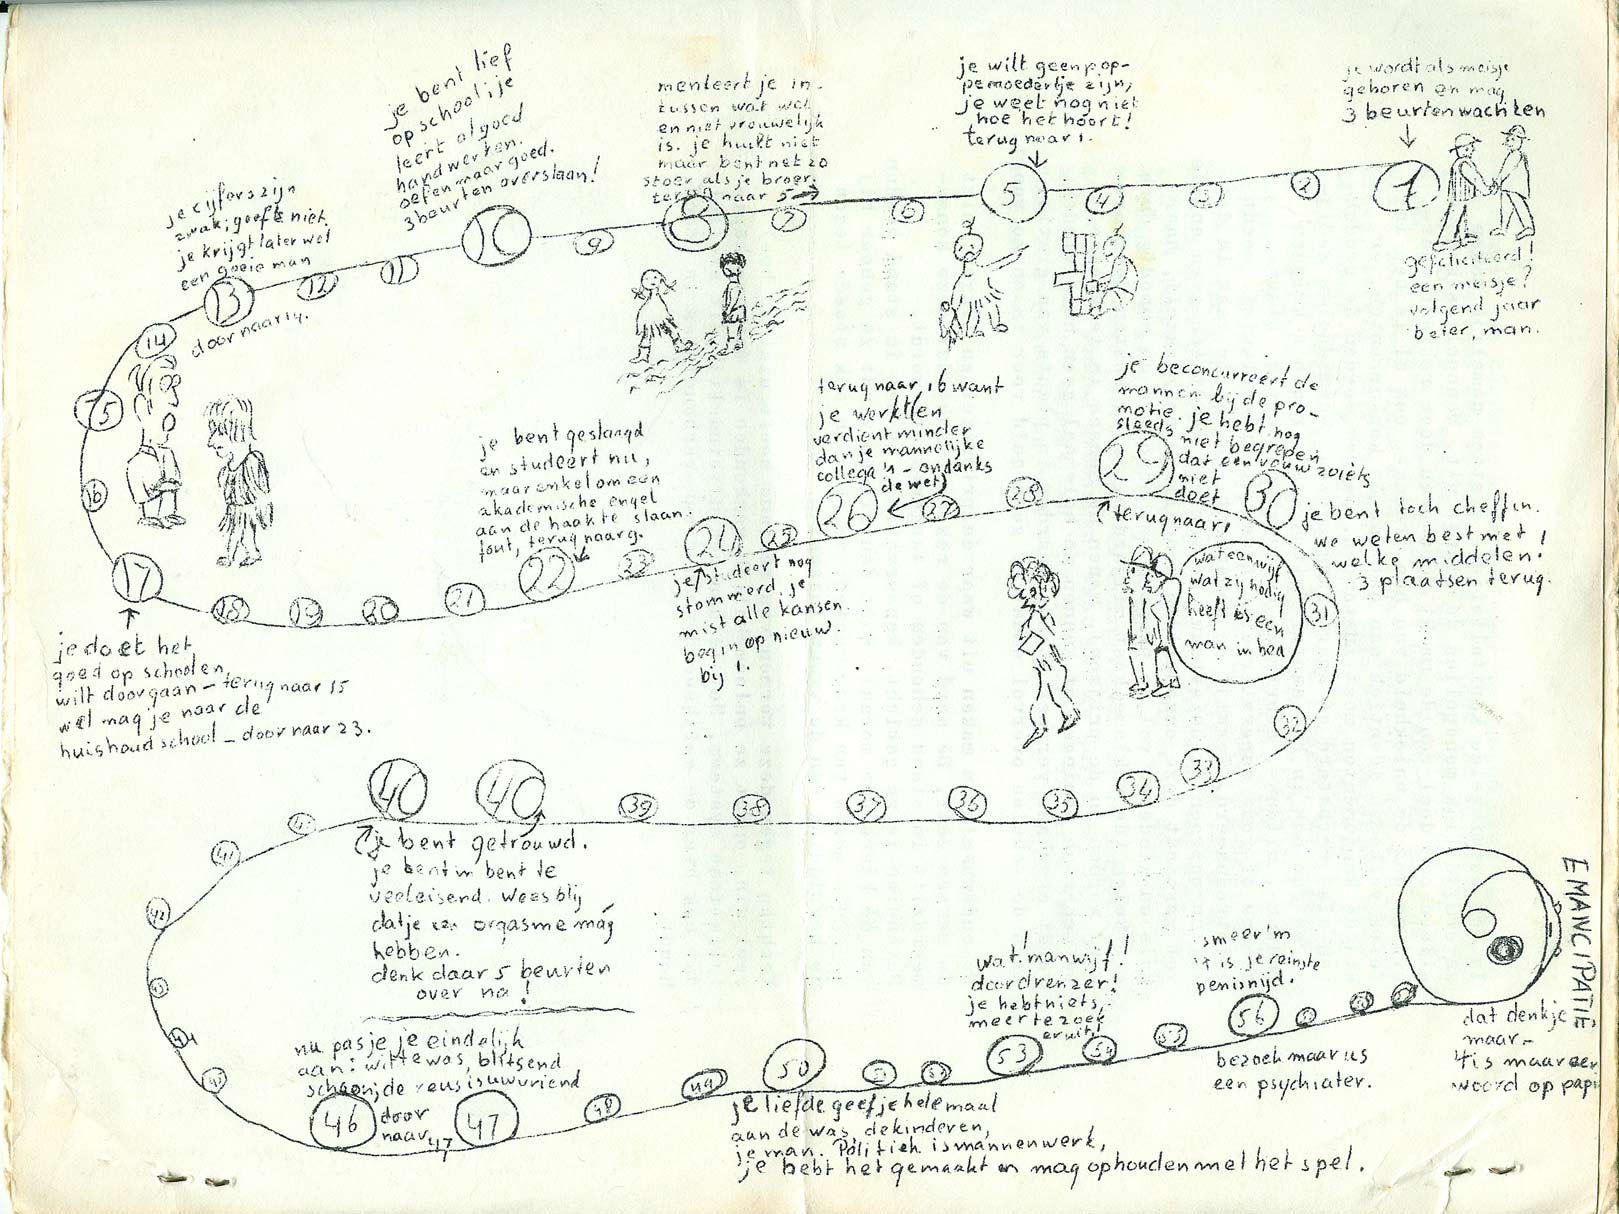 je wordt als meisje
geboren en mag
3 beurten wachten
1
gefeliciteerd!
een meisje?
volgend jaar
beter, man.
2
3
4
je wilt geen pop-
pemoedertje zijn,
je weet nog niet
hoe het hoort!
terug naar 1.
5
6
7
menteert je in-
tussen wat wel
en niet vrouwelijk
is. je huilt niet
maar bent net zo
stoer als je broer.
terug naar 5
8
9
je bent lief
op school; je
leert al goed
handwerken.
oefen maar goed.
3 beurten overslaan!
10
11
12
je cijfers zijn
zwak; geeft niet,
je krijgt later wel
een goeie man
13
door naar 14.
14
15
16
17
je doet het
goed op school en
wilt doorgaan - terug naar 15
wel mag je naar de
huishoudschool - door naar 23.
18
19
20
21
je bent geslaagd
en studeert nu,
maar enkel om een
akademische engel
aan de haak te slaan.
fout, terug naar 9.
22
23
24
je studeert nog
stommerd, je
mist alle kansen.
begin op nieuw
bij 1.
25
terug naar 16 want
je werkt en
verdient minder
dan je mannelijke
collega's - ondanks
de wet)
26
27
28
je beconcurreert de
mannen bij de pro-
motie. je hebt nog
steeds niet begrepen
dat een vrouw zoiets
niet
doet
29
terug naar 1
30
je bent toch cheffin.
we weten best met
welke middelen!
3 plaatsen terug.
wat een wijf
wat zij nodig
heeft is een
man in bed
31
32
33
34
35
36
37
38
39
40
40
je bent getrouwd.
je bent in bent te
veeleisend. Wees blij
dat je een orgasme mág
hebben.
denk daar 5 beurten
over na!
41
42
43
44
45
nu pas je je eindelijk
aan: witte was, blitsend
schoon, de reus is uw vriend
46
door
naar 47
47
48
49
50
je liefde geef je helemaal
aan de was, de kinderen,
je man. Politiek is mannenwerk,
je hebt het gemaakt en mag ophouden met het spel.
51
52
wat 'n manwijf!
doordrenzer!
je hebt niets
meer te zoek
eruit!
53
54
55
smeer 'm
't is je reinste
penisnijd.
56
bezoek maar us
een psychiater.
EMANCIPATIE
dat denk je
maar -
't is maar een
woord op papi